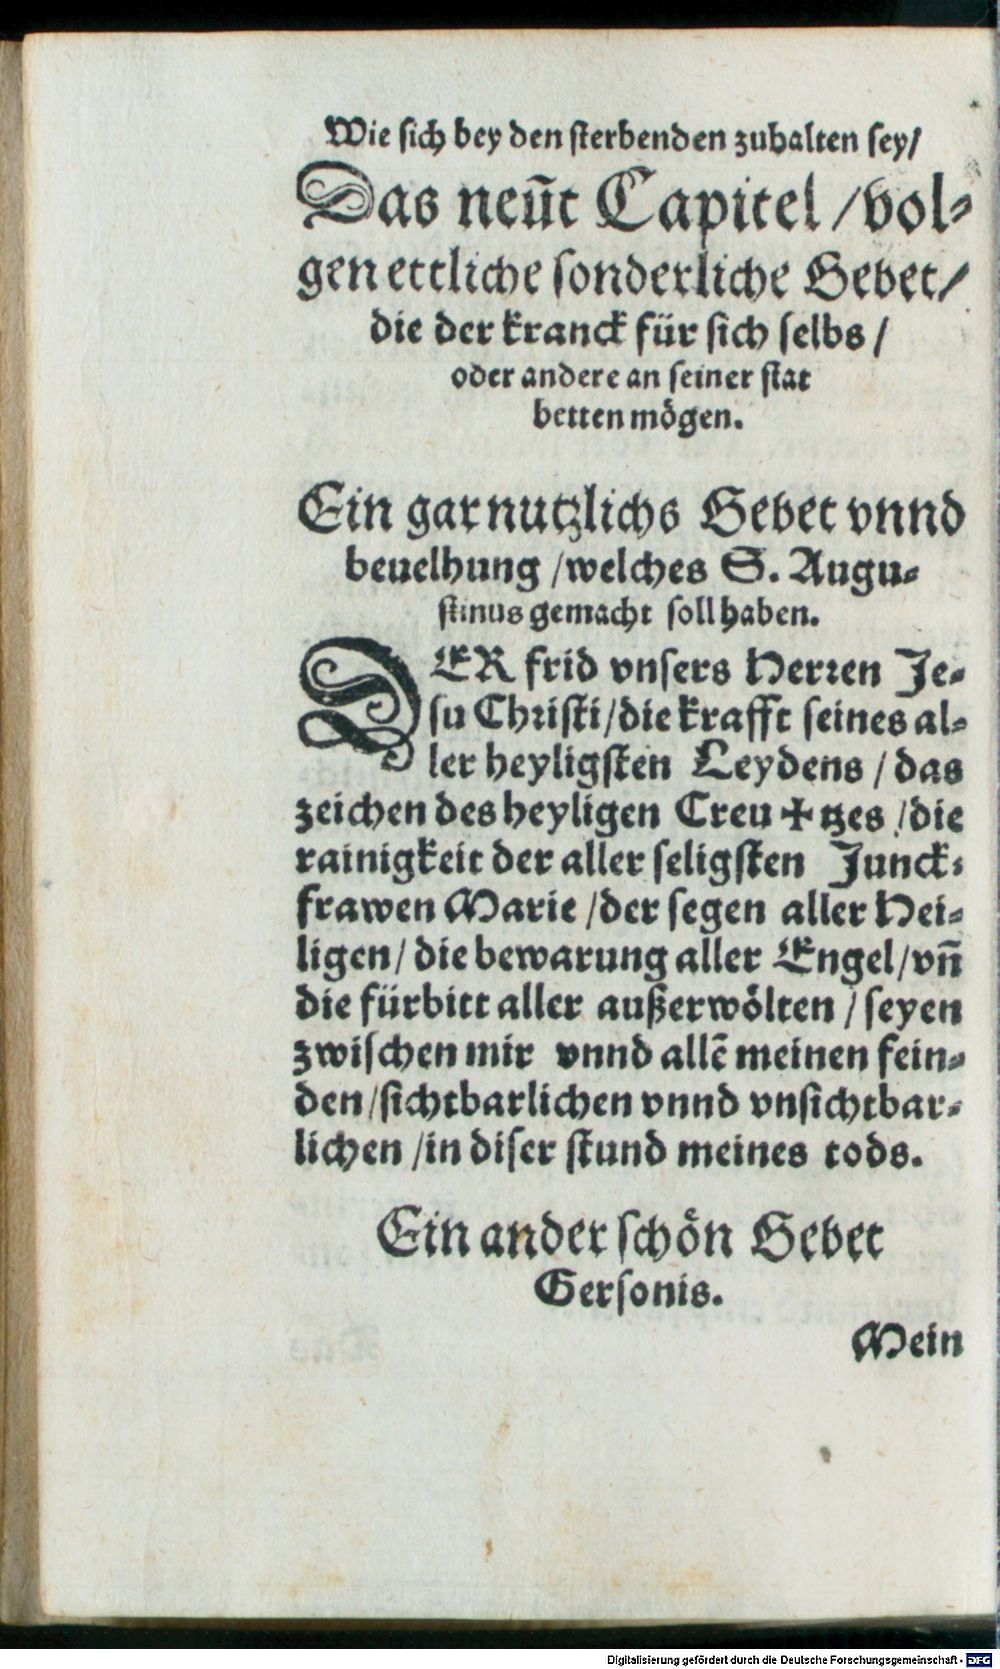 Wie sich bey den sterbenden zuhalten sey/
Das neu̅t Capitel /vol⸗
gen ettliche sonderliche Gebet/
die der kranck für sich selbs /
oder andere an seiner stat
betten mögen.
Ein gar nutzlichs Gebet vnnd
beuelhung /welches S. Augu⸗
stinus gemacht soll haben.
DER frid vnsers Herren Je⸗
su Christi/die krafft seines al⸗
ler heyligsten Leydens / das
zeichen des heyligen Creu ✠ tzes /die
rainigkeit der aller seligsten Junck⸗
frawen Marie /der segen aller Hei⸗
ligen/ die bewarung aller Engel/vn̅
die fürbitt aller außerwölten / seyen
zwischen mir vnnd alle̅ meinen fein⸗
den/sichtbarlichen vnnd vnsichtbar⸗
lichen /in diser stund meines tods.
Ein ander schön Gebet
Gersonis.
Mein
Digitalisierung gefördert durch die Deutsche Forschungsgemeinschaft - DFG